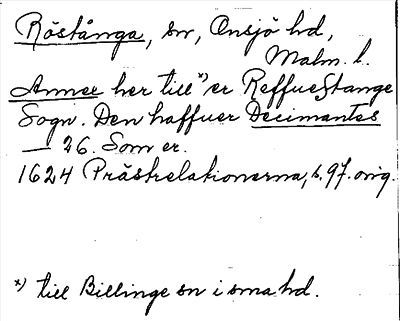 Röstånga, sn, Onsjö hd,
Malm. l.
Annex her till *) er Reffuestange
Sogn. Den haffuer Decimantes
— 26. Som er.
1624 Prästrelationerna, s. 97. orig.
*) till Billinge sn i sma hd.